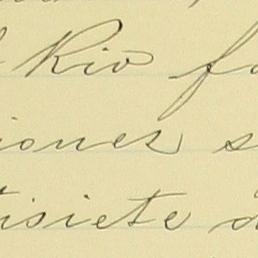 Rio fa
iones s
tisiete d